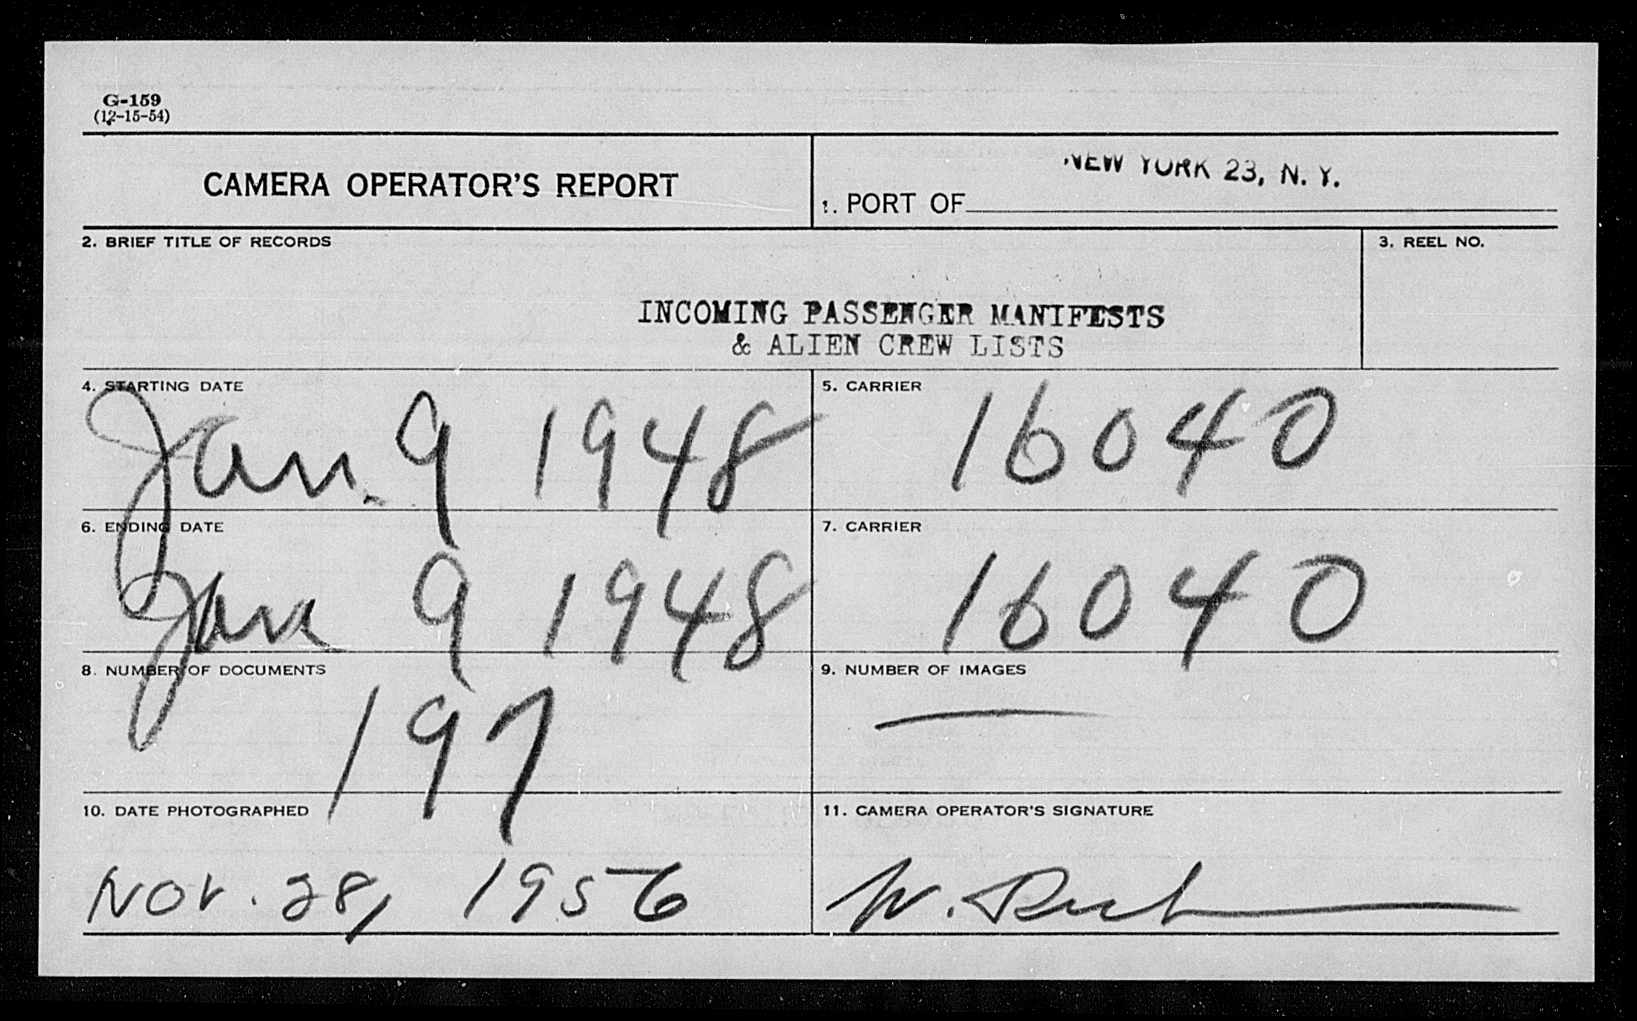 G-159
(12-15-54)
CAMERA OPERATOR'S REPORT
NEW YORK 23, N. Y.
1. PORT OF
2. BRIEF TITLE OF RECORDS
3. REEL NO.
INCOMING PASSENGER MANIFESTS
& ALIEN CREW LISTS
4. STARTING DATE
Jan. 9 1948
5. CARRIER
16040
6. ENDING DATE
Jan 9 1948
7. CARRIER
16040
8. NUMBER OF DOCUMENTS
197
9. NUMBER OF IMAGES
—
10. DATE PHOTOGRAPHED
Nov. 28, 1956
11. CAMERA OPERATOR'S SIGNATURE
W.